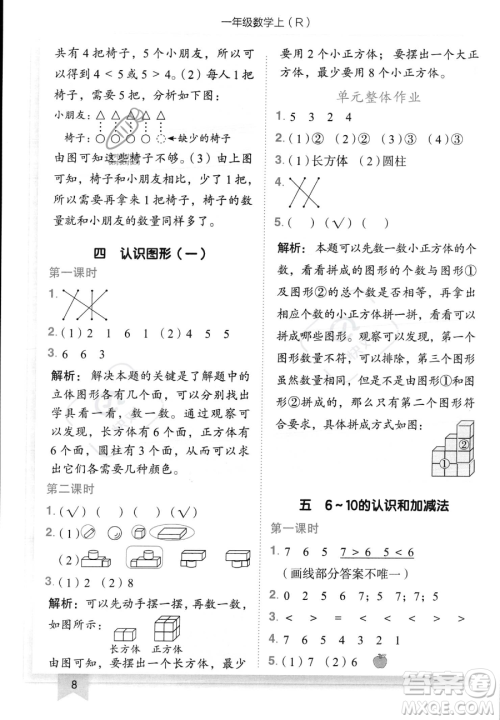 一年级数学上(R)
共有4把椅子,5个小朋友,所以
得到4<5或5>4。(2)每人1把
椅子,需要5把,分析如下图:
小朋友:
椅子: 缺少的椅子
由图可知这些椅子不够。(3)由上图
可知,椅子和小朋友一一对应,少了1
把,所以需要再拿来1把椅子,椅子的
数量就和小朋友的数量同样多了。
四 认识图形(一)
第一课时
1.
2.(1)2 1 6 1 (2)4 5 5
3.6 6 3
解析:解决本题的关键是了解题中的
立体图形各有几个面,可以找出相应
学具看一看,数一数。通过观察可以
发现,长方体有6个面,正方体也有
6个面,圆柱有3个面,所以它们各
需要涂上6种、6种、3种颜色。
第二课时
1.( )(√)( )( )
2.(1)
(2)
3.(1)2 (2)8
解析:可以先动手摆一摆,再数一数,
如图所示:
正方体 长方体
由图可知,要拼一个长方体,最少
需要用2个小正方体;要拼一个大正
方体,最少要用8个小正方体。
单元整体作业
1.5 3 2 4
2.(1)② (2)① (3)④ (4)③
3.(1)长方体 (2)圆柱
4.
5.( )( )(√)
解析:本题可以先数一数小正方体的
个数,看拼成的图形的个数与图形①
和图形②的总个数是否相同,再看拼
出来相应个数的图形里有没有图形①
和图形②。观察可知,第一个图形和
图形数量不符,可以排除,第二个图形
虽然数量相同,但不是由图形①和图
形②拼成的,只有第三个图形是由图
形①和图形②拼成的,如图。
①
②
五 6~10的认识和加减法
第一课时
1.7 6 5 7>6 5<6
(画线部分答案不唯一)
2.0 2 5 6 7;7 5;7
3.> < < > < <
4.5 6 7 4 3 2 1
5.(1)7 (2)6
8